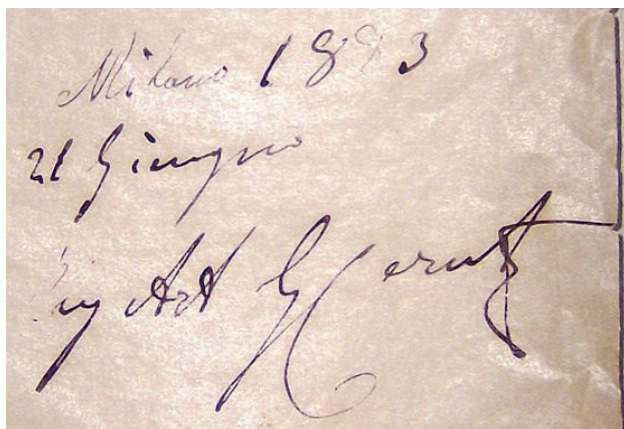 Milano 1883
21 Giugno
Ing Art G Cerut